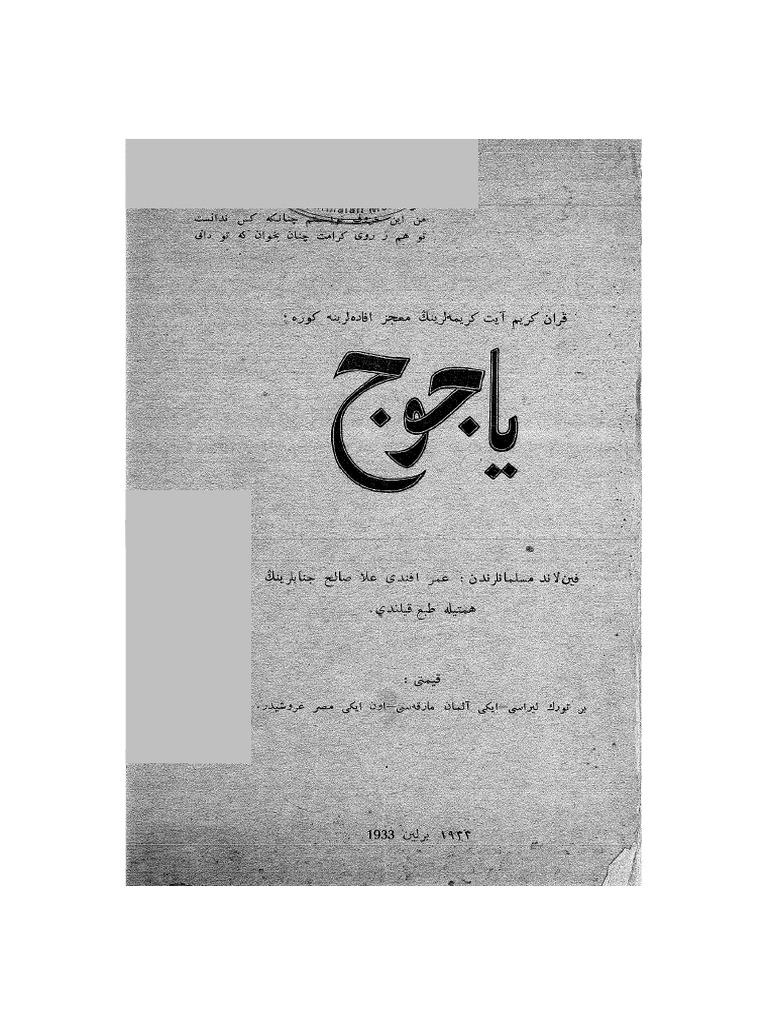 من این حروف نوشتم چنانکه کس ندانست
تو هم ز روی کرامت چنان بخوان که تو دانی
قران کریم آیت کریمه‌لرینڭ معجز افاده‌لرینه کوره :
یاجوج
فین‌لاند مسلمانلرندن : عمر افندی علا صالح جنابلرینڭ
همتیله طبع قیلندي.
قیمتی :
بر تورك لیراسی–ایکی آلمان مارقه‌سی–اون ایکی مصر غروشیدر.
۱۹۳۳ برلین 1933